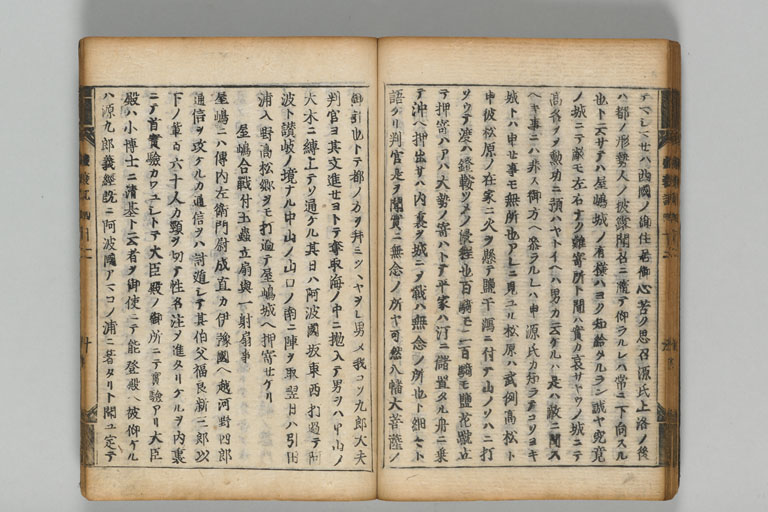 テマシマセハ西國ノ御住居御心苦ク思召源氏上洛ノ後
ハ都ノ形勢人ノ披露聞召ニ簾テ仰ラルレハ常ニ下向スル
也ト云サテハ屋嶋城ノ有様ハヨク知給タルラン誠ヤ究竟
ノ城ニテ敵モ左右ナク難寄所ト聞ハ實カ哀サヤウノ城ニテ
高名ヲモ勲功ニ預ハヤトイヘハ男カ云ケルハ是ハ敵ニ聞入
ヘキ事ニハ非ス御方ヘ參ラルレハ申源氏カ知ラテコソヨキ
城トハ申セ事モ無所也アレニ見ユル松原ハ武例高松ト
申彼松原ノ在家ニ火ヲ懸テ鹽干潟ニ付テ山ノソハニ打
ソウテ渡ハ鐙鞍ツメノ浸程也百騎モ二百騎モ鹽花蹴立
テ押寄ハアハ大勢ノ寄ハトテ平家ハ汀ニ儲置タル舟ニ乗
テ沖ヘ押出サハ内裏ヲ城ニシテ戰ハ無念ノ所也ト細々ト
語ケリ判官是ヲ聞實ニ無念ノ所ヤ可然八幡大菩薩ノ
御引也トテ都ノ方ヲ拜ミツヽヤヲレ男メ我コソ九郎大夫
判官ヨ其文進セヨトテ奪取海ノ中ニ抛入テ男ヲハ中山ノ
大木ニ縛上テソ通ケル其日ハ阿波國坂東西打過テ阿
波ト讃岐ノ境ナル中山ノ山口ノ南ニ陣ヲ取翌日ハ引田
浦入野高松郷ヲモ打過テ屋嶋城ヘ押寄セケリ
屋嶋合戰付玉蟲立扇與一射扇事
屋嶋ニハ傳内左衛門尉成直カ伊豫國ヘ越河野四郎
通信ヲ攻ケルカ通信ヲハ討逃シテ其伯父福良新三郎以
下ノ輩百六十人カ頸ヲ切テ姓名注ヲ進タリケルヲ内裏
ニテ首實驗カワユシトテ大臣殿ノ御所ニテ實驗アリ大臣
殿ハ小博士ニ清基ト云者ヲ御使ニテ能登殿ヘ被仰ケル
ハ源九郎義經既ニ阿波國アマコノ浦ニ著タリト聞ユ定テ